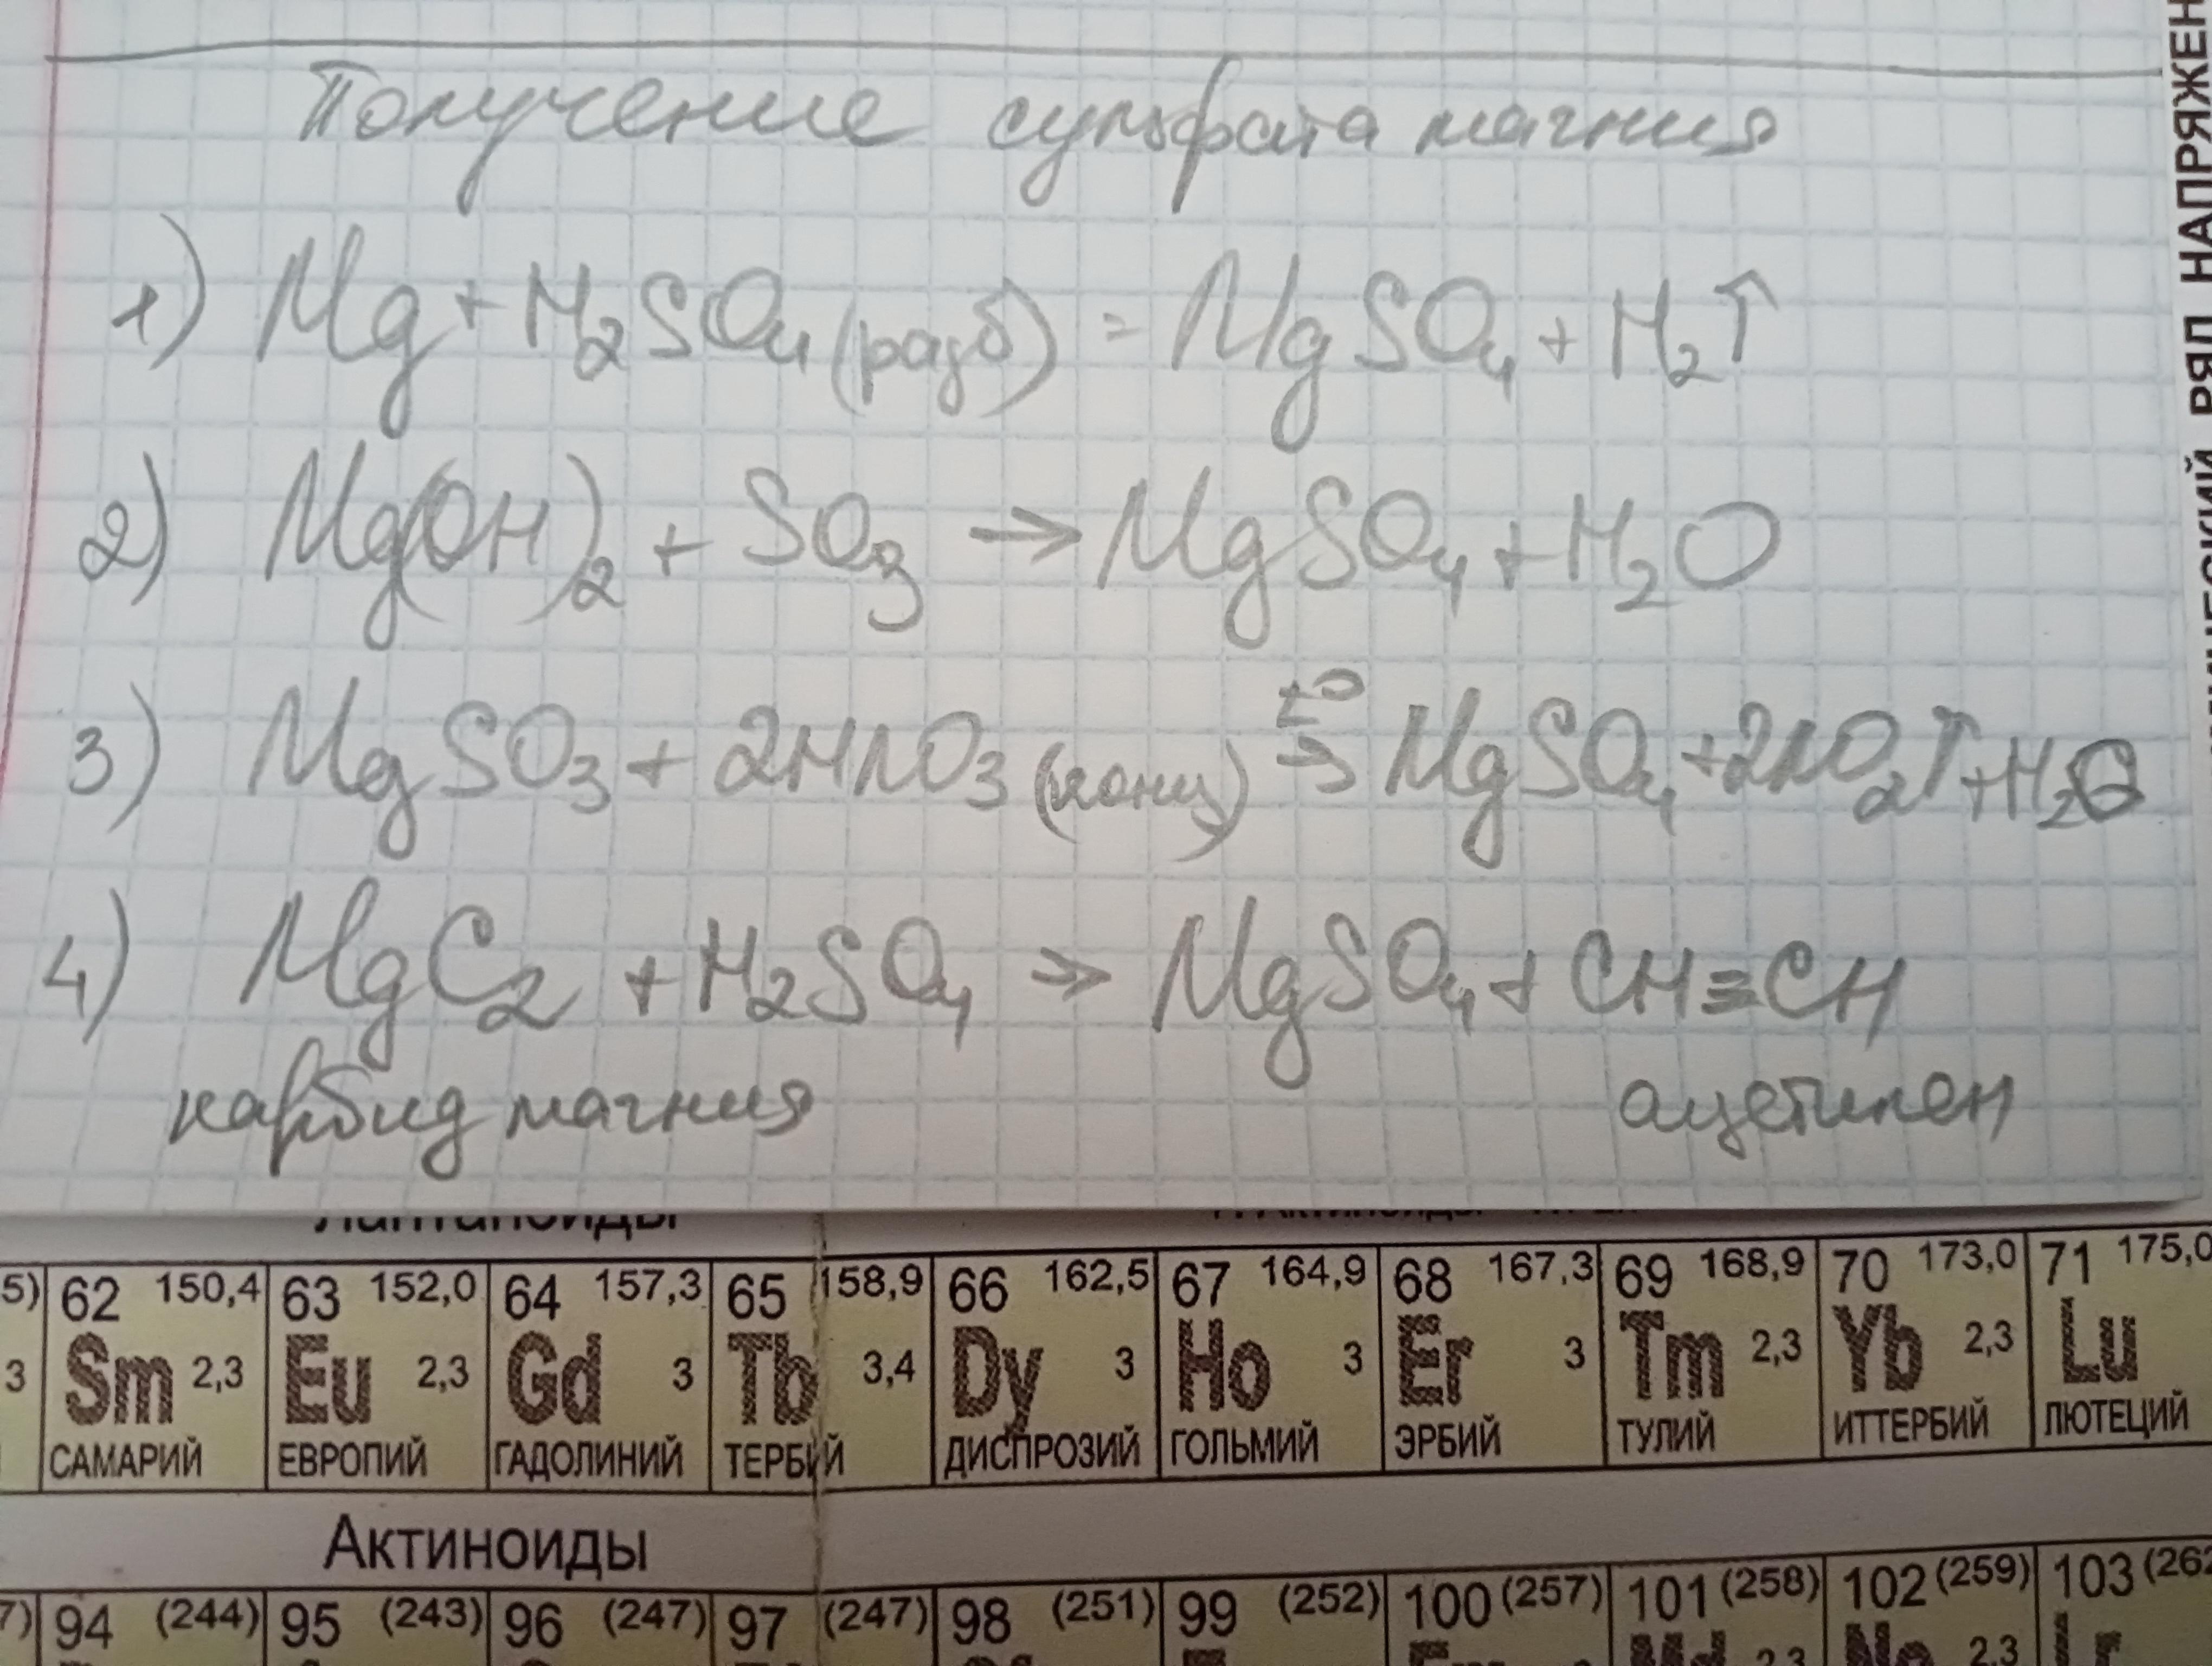 Получение сульфата магния
1) Mg + H₂SO₄ (разб) = MgSO₄ + H₂↑
2) Mg(OH)₂ + SO₃ → MgSO₄ + H₂O
3) MgSO₃ + 2HNO₃ (конц) t° → MgSO₄ + 2NO₂↑ + H₂O
4) MgC₂ + H₂SO₄ → MgSO₄ + CH≡CH
карбид магния ацетилен
РЯД НАПРЯЖЕН
Лантаноиды
5) 62 150,4 63 152,0 64 157,3 65 158,9 66 162,5 67 164,9 68 167,3 69 168,9 70 173,0 71 175,0
3 Sm 2,3 Eu 2,3 Gd 3 Tb 3,4 Dy 3 Ho 3 Er 3 Tm 2,3 Yb 2,3 Lu
САМАРИЙ ЕВРОПИЙ ГАДОЛИНИЙ ТЕРБИЙ ДИСПРОЗИЙ ГОЛЬМИЙ ЭРБИЙ ТУЛИЙ ИТТЕРБИЙ ЛЮТЕЦИЙ
Актиноиды
7) 94 (244) 95 (243) 96 (247) 97 (247) 98 (251) 99 (252) 100 (257) 101 (258) 102 (259) 103 (262
Md 2,3 No 2,3